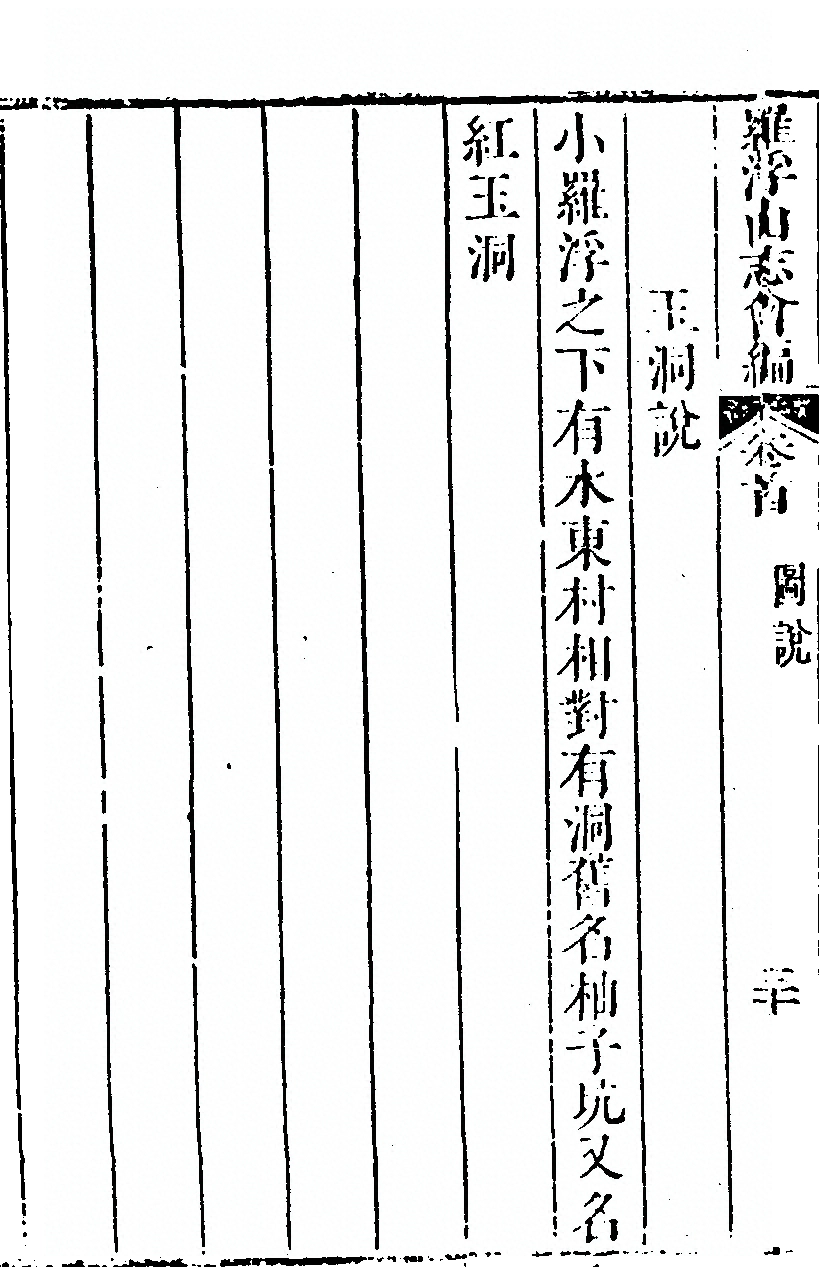 羅浮山志會編
卷首
圖說
玉洞說
小羅浮之下有水東村相對有洞舊名柚子坑又名
紅玉洞